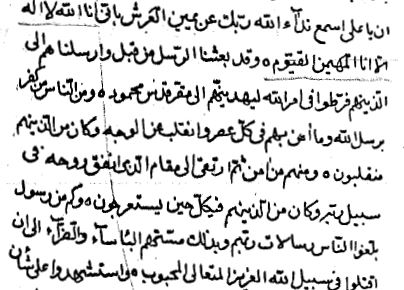 ان يا على اسمع ندآء الله ربك عن يمين العرش بانى انا الله لا اله
الا انا المهيمن القيوم وقد بعثنا الرسل من قبل وارسلناهم الى
الذينهم فرّطوا فى امر الله ليهدينهم الى مقر قدس محمود ومن الناس من كفر
برسل الله وما آمن بهم فى كل عصر وانقلب عن الوجه وكان من الذينهم
منقلبون ومنهم من آمن ثم ارتقى الى مقام الذى انفق روحه فى
سبيل ربه وكان من الذينهم فى كل حين يستعرجون وكم من رسول
بلغوا الناس رسالات ربهم وبذلك مستهم البأسآء والضرآء الى ان
اقتلوا فى سبيل الله العزيز المتعالى المحبوب واستشهدوا على شأن